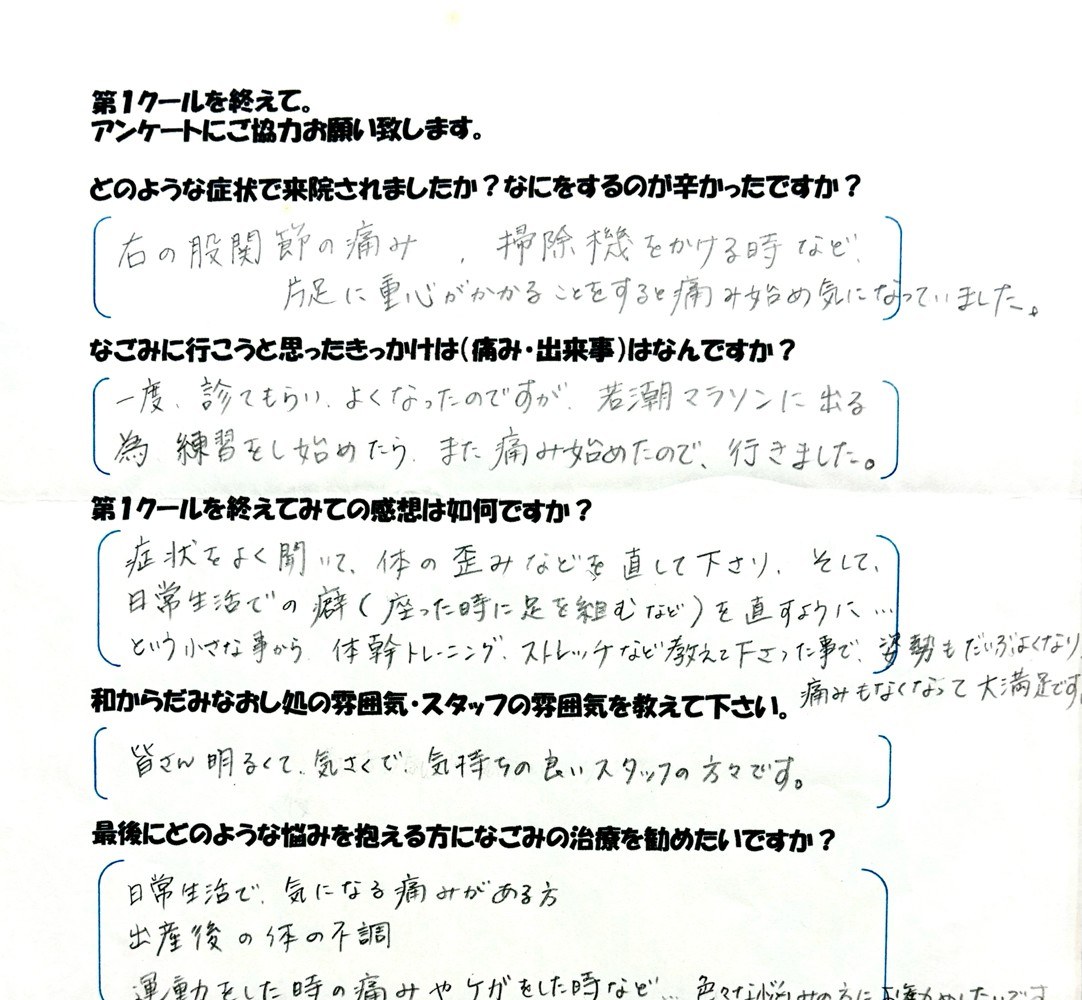 第1クールを終えて。
アンケートにご協力お願い致します。
どのような症状で来院されましたか？なにをするのが辛かったですか？
右の股関節の痛み、掃除機をかける時など、
片足に重心がかかることをすると痛み始め気になっていました。
なごみに行こうと思ったきっかけは(痛み・出来事)はなんですか？
一度、診てもらい、よくなったのですが、若潮マラソンに出る
為 練習をし始めたら、また痛み始めたので、行きました。
第1クールを終えてみての感想は如何ですか？
症状をよく聞いて、体の歪みなどを直して下さり、そして、
日常生活での癖(座った時に足を組むなど)を直すように…
という小さな事から、体幹トレーニング、ストレッチなど教えて下さった事で、姿勢もだいぶよくなり、
痛みもなくなって大満足です
和からだみなおし処の雰囲気・スタッフの雰囲気を教えて下さい。
皆さん明るくて、気さくで、気持ちの良いスタッフの方々です。
最後にどのような悩みを抱える方になごみの治療を勧めたいですか？
日常生活で、気になる痛みがある方
出産後の体の不調
運動をした時の痛みやケガをした時など… 色々な悩みの方にお勧めしたいです